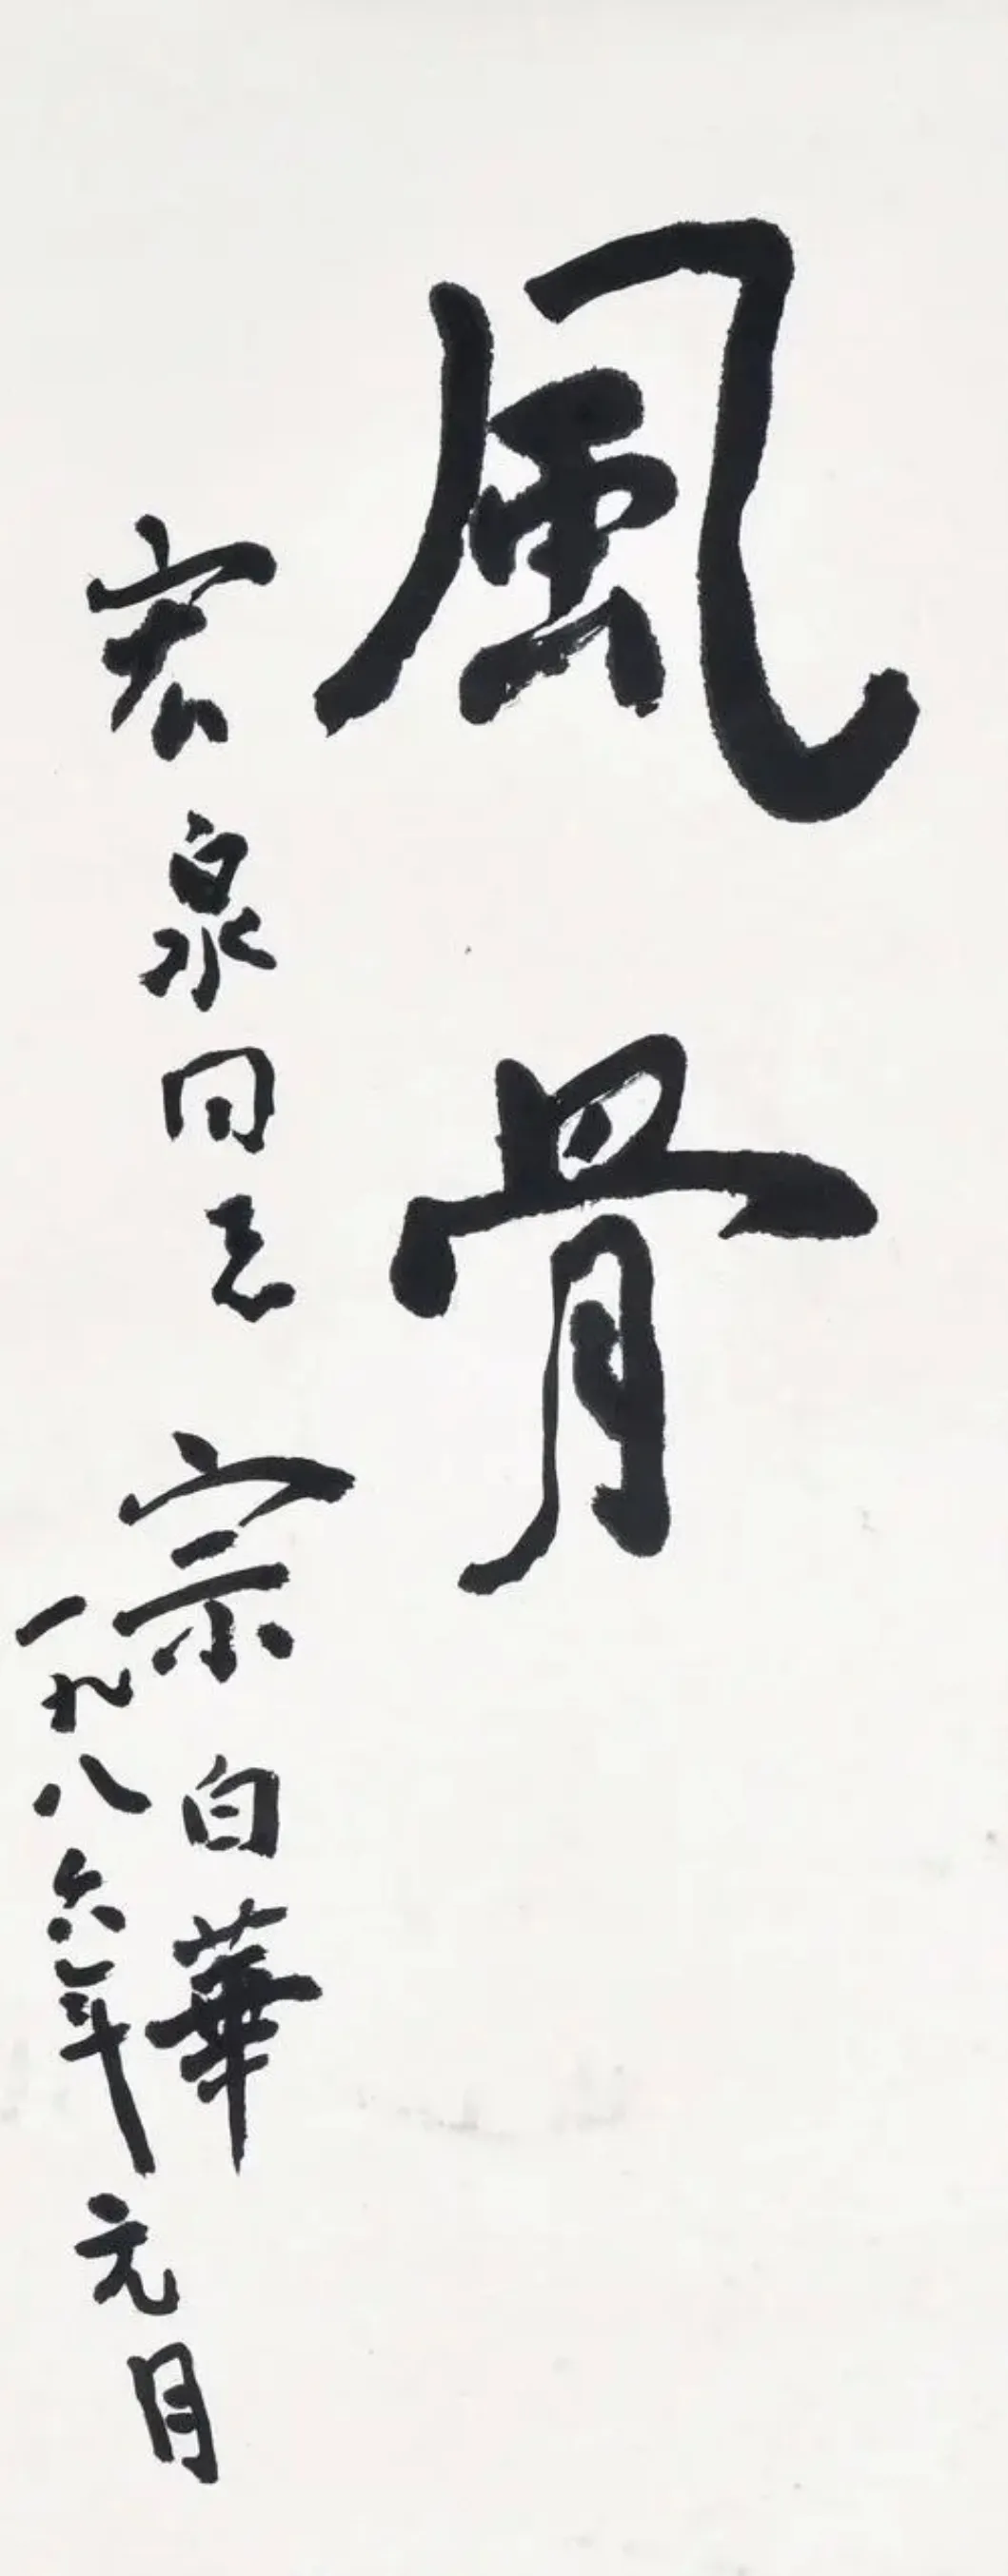 風骨
宏泉同志
宗白華
一九八六年元月